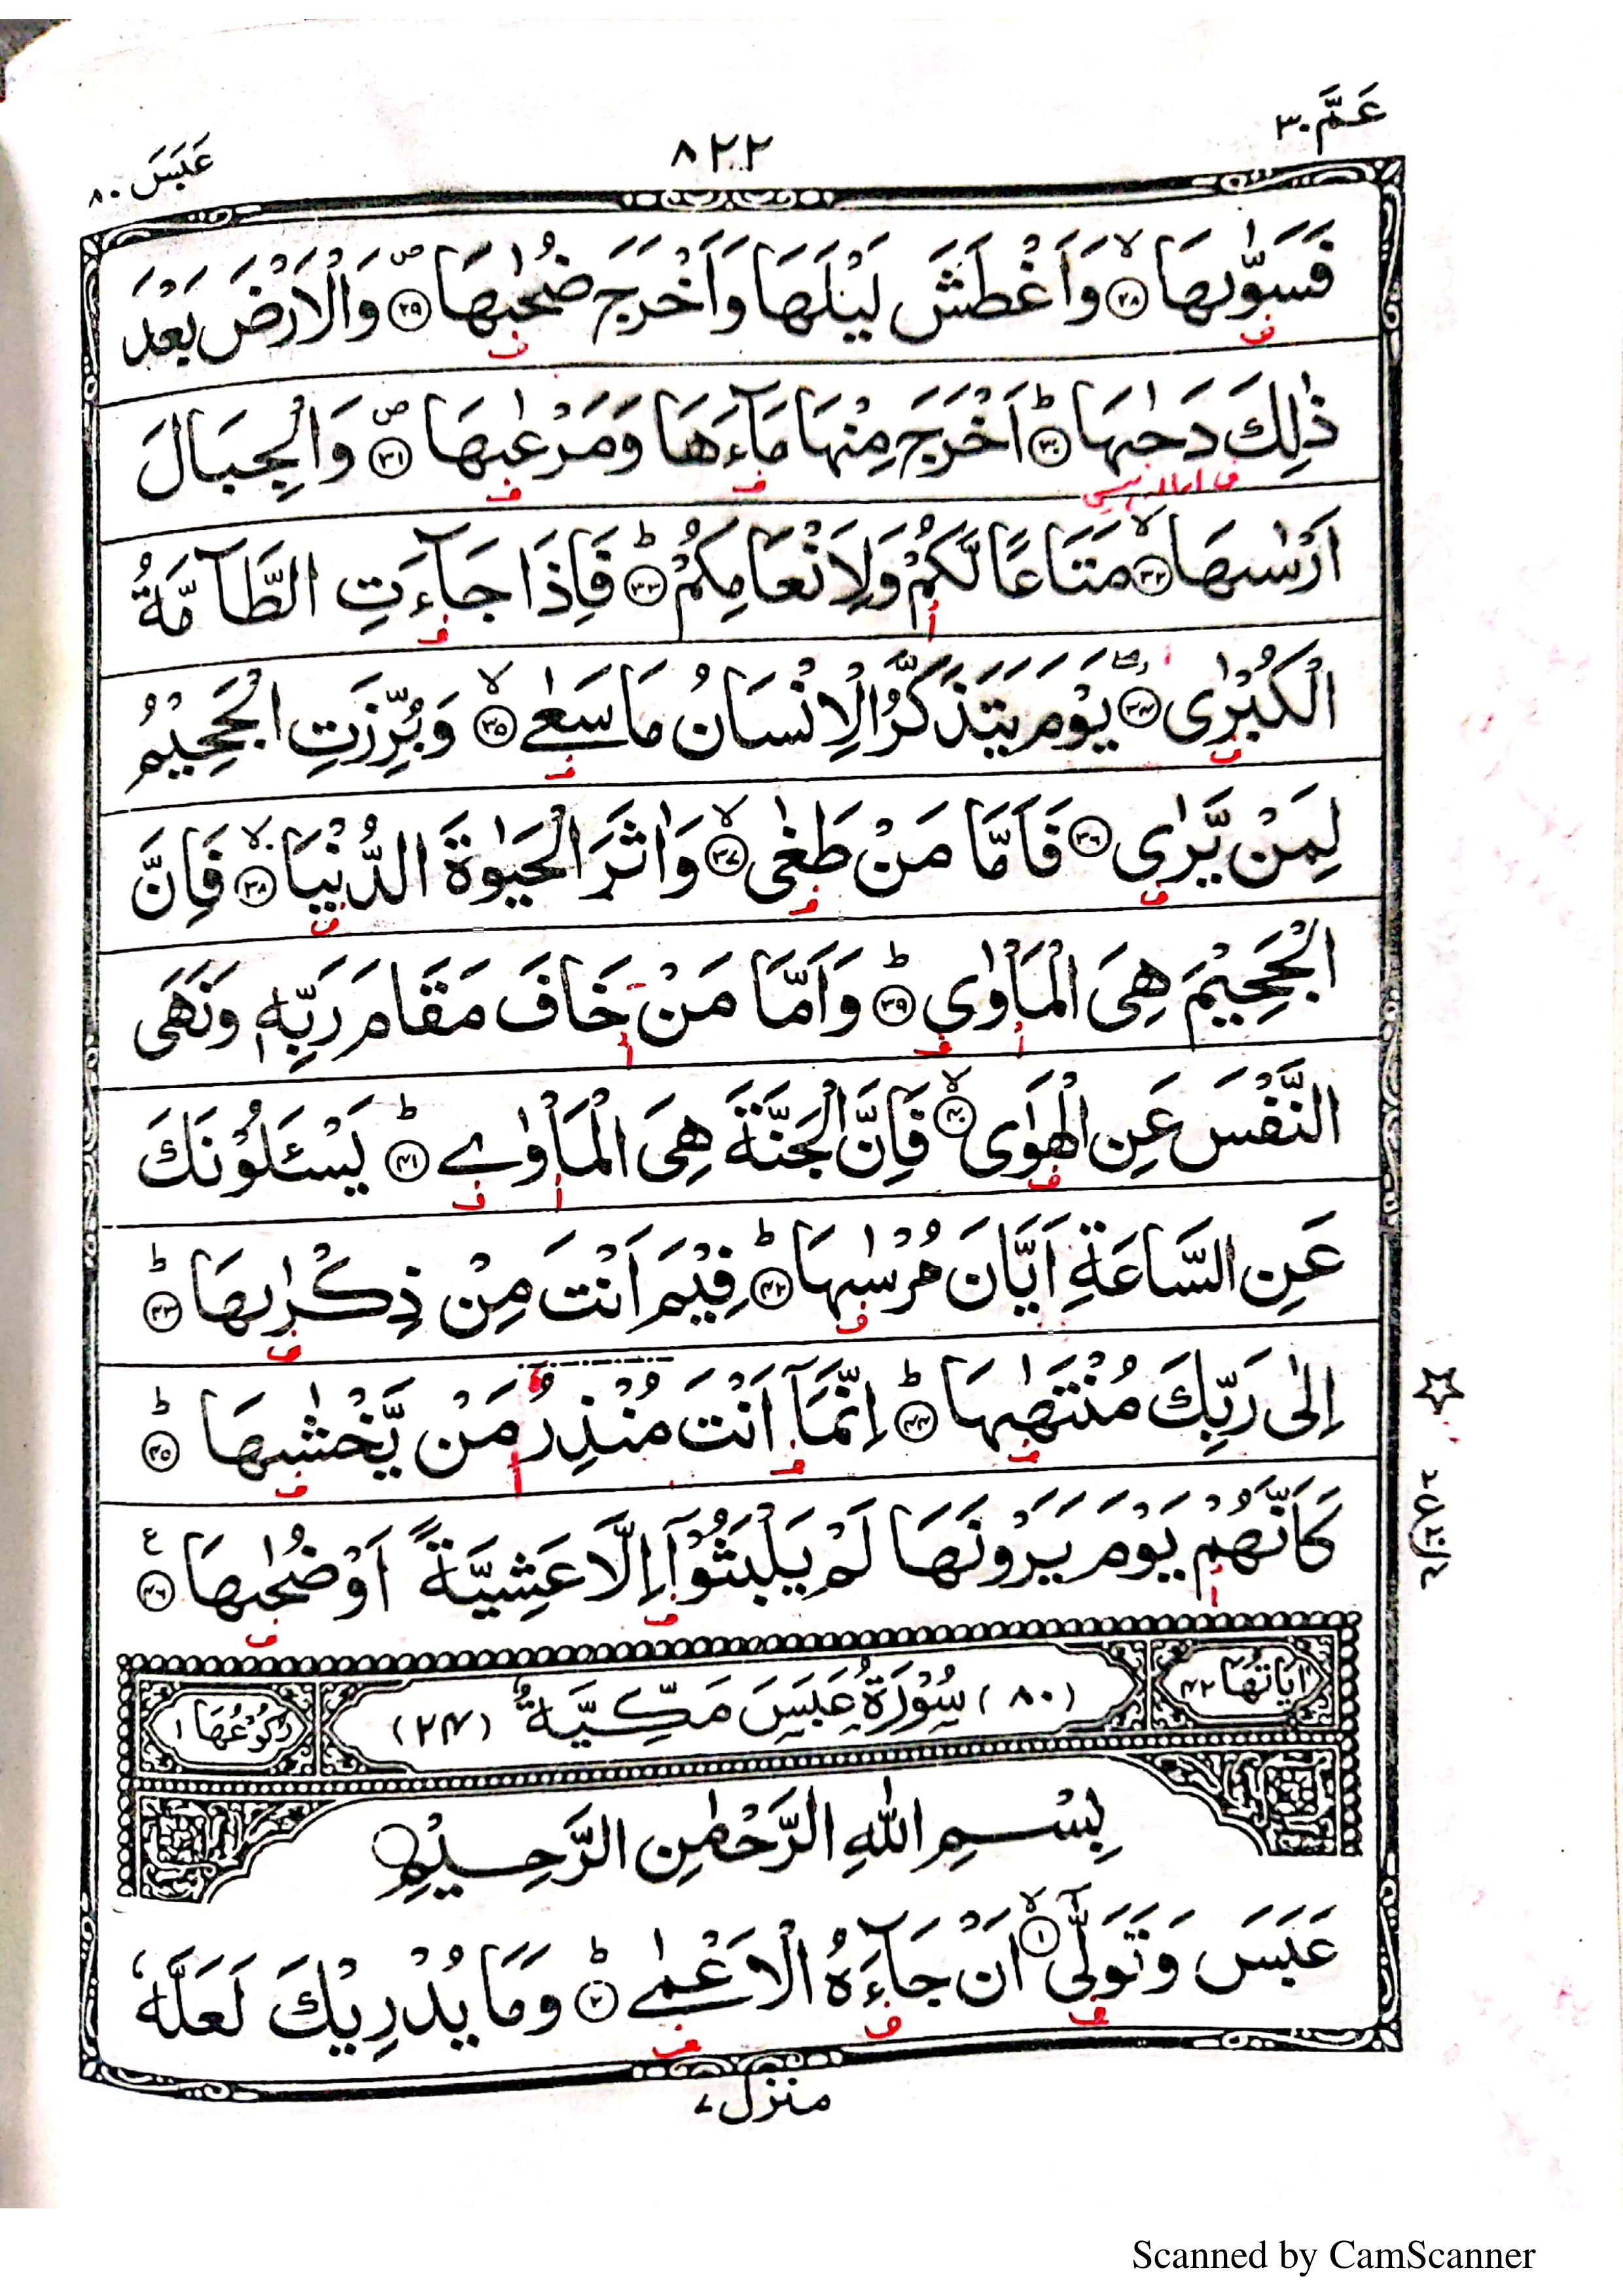 عَمَّ ٣٠
٨٢٢
عَبَسَ ٨٠
فَسَوّٰىهَا ۙ﴿٢٨﴾ وَاَغْطَشَ لَيْلَهَا وَاَخْرَجَ ضُحٰىهَا ۪﴿٢٩﴾ وَالْاَرْضَ بَعْدَ
ذٰلِكَ دَحٰىهَا ؕ﴿٣٠﴾ اَخْرَجَ مِنْهَا مَآءَهَا وَمَرْعٰىهَا ۪﴿٣١﴾ وَالْجِبَالَ
اَرْسٰىهَا ۙ﴿٣٢﴾ مَتَاعًا لَّكُمْ وَلِاَنْعَامِكُمْ ؕ﴿٣٣﴾ فَاِذَا جَآءَتِ الطَّآمَّةُ
الْكُبْرٰى ۖ﴿٣٤﴾ يَوْمَ يَتَذَكَّرُ الْاِنْسَانُ مَا سَعٰى ۙ﴿٣٥﴾ وَبُرِّزَتِ الْجَحِيْمُ
لِمَنْ يَّرٰى ﴿٣٦﴾ فَاَمَّا مَنْ طَغٰى ۙ﴿٣٧﴾ وَاٰثَرَ الْحَيٰوةَ الدُّنْيَا ۙ﴿٣٨﴾ فَاِنَّ
الْجَحِيْمَ هِىَ الْمَاْوٰى ؕ﴿٣٩﴾ وَاَمَّا مَنْ خَافَ مَقَامَ رَبِّهٖ وَنَهَى
النَّفْسَ عَنِ الْهَوٰى ۙ﴿٤٠﴾ فَاِنَّ الْجَنَّةَ هِىَ الْمَاْوٰى ؕ﴿٤١﴾ يَسْـَٔلُوْنَكَ
عَنِ السَّاعَةِ اَيَّانَ مُرْسٰىهَا ؕ﴿٤٢﴾ فِيْمَ اَنْتَ مِنْ ذِكْرٰىهَا ؕ﴿٤٣﴾
اِلٰى رَبِّكَ مُنْتَهٰىهَا ؕ﴿٤٤﴾ اِنَّمَآ اَنْتَ مُنْذِرُ مَنْ يَّخْشٰىهَا ؕ﴿٤٥﴾
كَاَنَّهُمْ يَوْمَ يَرَوْنَهَا لَمْ يَلْبَثُوْٓا اِلَّا عَشِيَّةً اَوْ ضُحٰىهَا ﴿٤٦﴾ ع
اٰيَاتُهَا ٤٢ (٨٠) سُوْرَةُ عَبَسَ مَكِّيَّةٌ (٢٤) رُكُوْعُهَا ١
بِسْمِ اللّٰهِ الرَّحْمٰنِ الرَّحِيْمِ
عَبَسَ وَتَوَلّٰٓى ۙ﴿١﴾ اَنْ جَآءَهُ الْاَعْمٰى ؕ﴿٢﴾ وَمَا يُدْرِيْكَ لَعَلَّهٗ
منزل ٧
Scanned by CamScanner